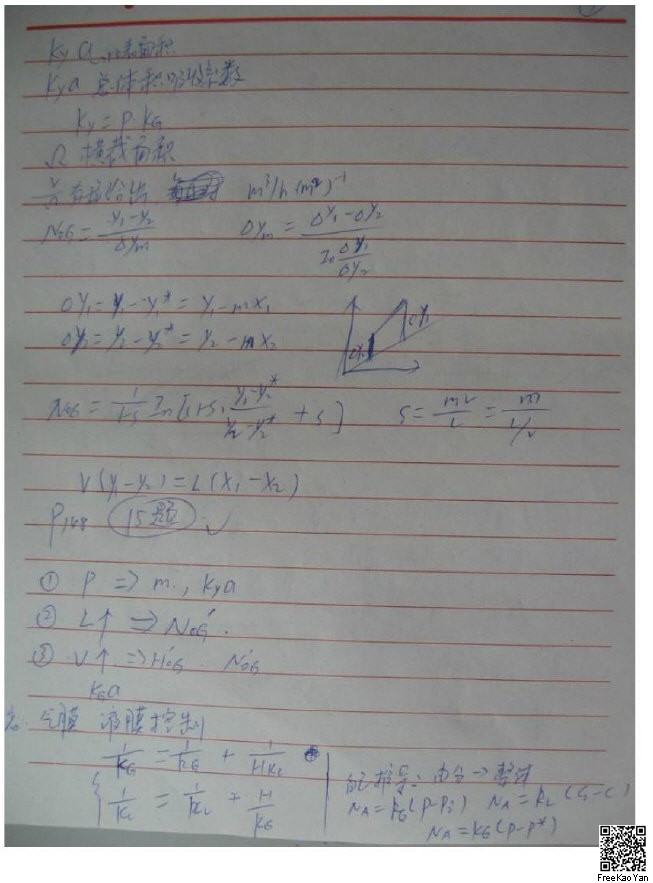 Kya
Kya 总体积吸收系数
Ky = P·KG
Ω 横截面积
m³/h (m²)⁻¹
NOG = (Y₁-Y₂)/ΔYm    ΔYm = (ΔY₁-ΔY₂)/(ln ΔY₁/ΔY₂)
ΔY₁ = Y₁-Y₁* = Y₁-mX₁
ΔY₂ = Y₂-Y₂* = Y₂-mX₂
NOG = 1/(1-S) ln[(1-S) (Y₁-Y₂*)/(Y₂-Y₂*) + S]    S = mV/L = m/(L/V)
V(Y₁-Y₂) = L(X₁-X₂)
P148 15题 ✓
① P ⇒ m, Kya
② L↑ ⇒ NOG'.
③ V↑ ⇒ HOG' NOG'
KGa
气膜 液膜控制
1/KG = 1/kG + 1/HkL
1/KL = 1/kL + H/kG
自己推导: →整体
NA = kG(P-Pi)  NA = kL(Ci-C)
NA = KG(P-P*)
FreeKaoYan